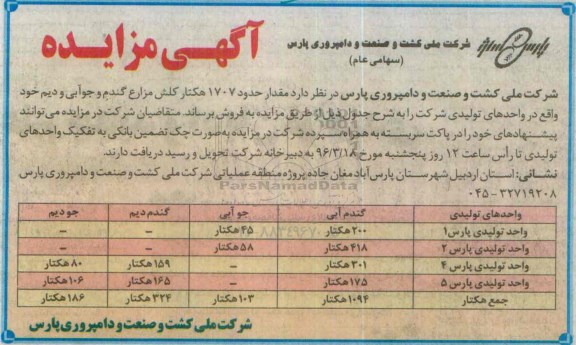 پارس
شرکت ملی کشت و صنعت و دامپروری پارس
(سهامی عام)
آگهی مزایده
شرکت ملی کشت و صنعت و دامپروری پارس در نظر دارد مقدار حدود ۱۷۰۷ هکتار کلش مزارع گندم و جو آبی و دیم خود
واقع در واحدهای تولیدی شرکت را به شرح جدول ذیل از طریق مزایده به فروش برساند. متقاضیان شرکت در مزایده می‌توانند
پیشنهادهای خود را در پاکت سربسته به همراه سپرده شرکت در مزایده به صورت چک تضمین بانکی به تفکیک واحدهای
تولیدی تا رأس ساعت ۱۲ روز پنجشنبه مورخ ۹۶/۳/۱۸ به دبیرخانه شرکت تحویل و رسید دریافت دارند.
نشانی: استان اردبیل شهرستان پارس آباد مغان جاده پروژه منطقه عملیاتی شرکت ملی کشت و صنعت و دامپروری پارس
۰۴۵-۳۲۷۱۹۲۰۸
ParsNamadData
واحدهای تولیدی گندم آبی جو آبی گندم دیم جو دیم
واحد تولیدی پارس ۱ ۲۰۰ هکتار ۴۵ هکتار – –
واحد تولیدی پارس ۲ ۴۱۸ هکتار ۵۸ هکتار – –
واحد تولیدی پارس ۴ ۳۰۱ هکتار – ۱۵۹ هکتار ۸۰ هکتار
واحد تولیدی پارس ۵ ۱۷۵ هکتار – ۱۶۵ هکتار ۱۰۶ هکتار
جمع هکتار ۱۰۹۴ هکتار ۱۰۳ هکتار ۳۲۴ هکتار ۱۸۶ هکتار
شرکت ملی کشت و صنعت و دامپروری پارس